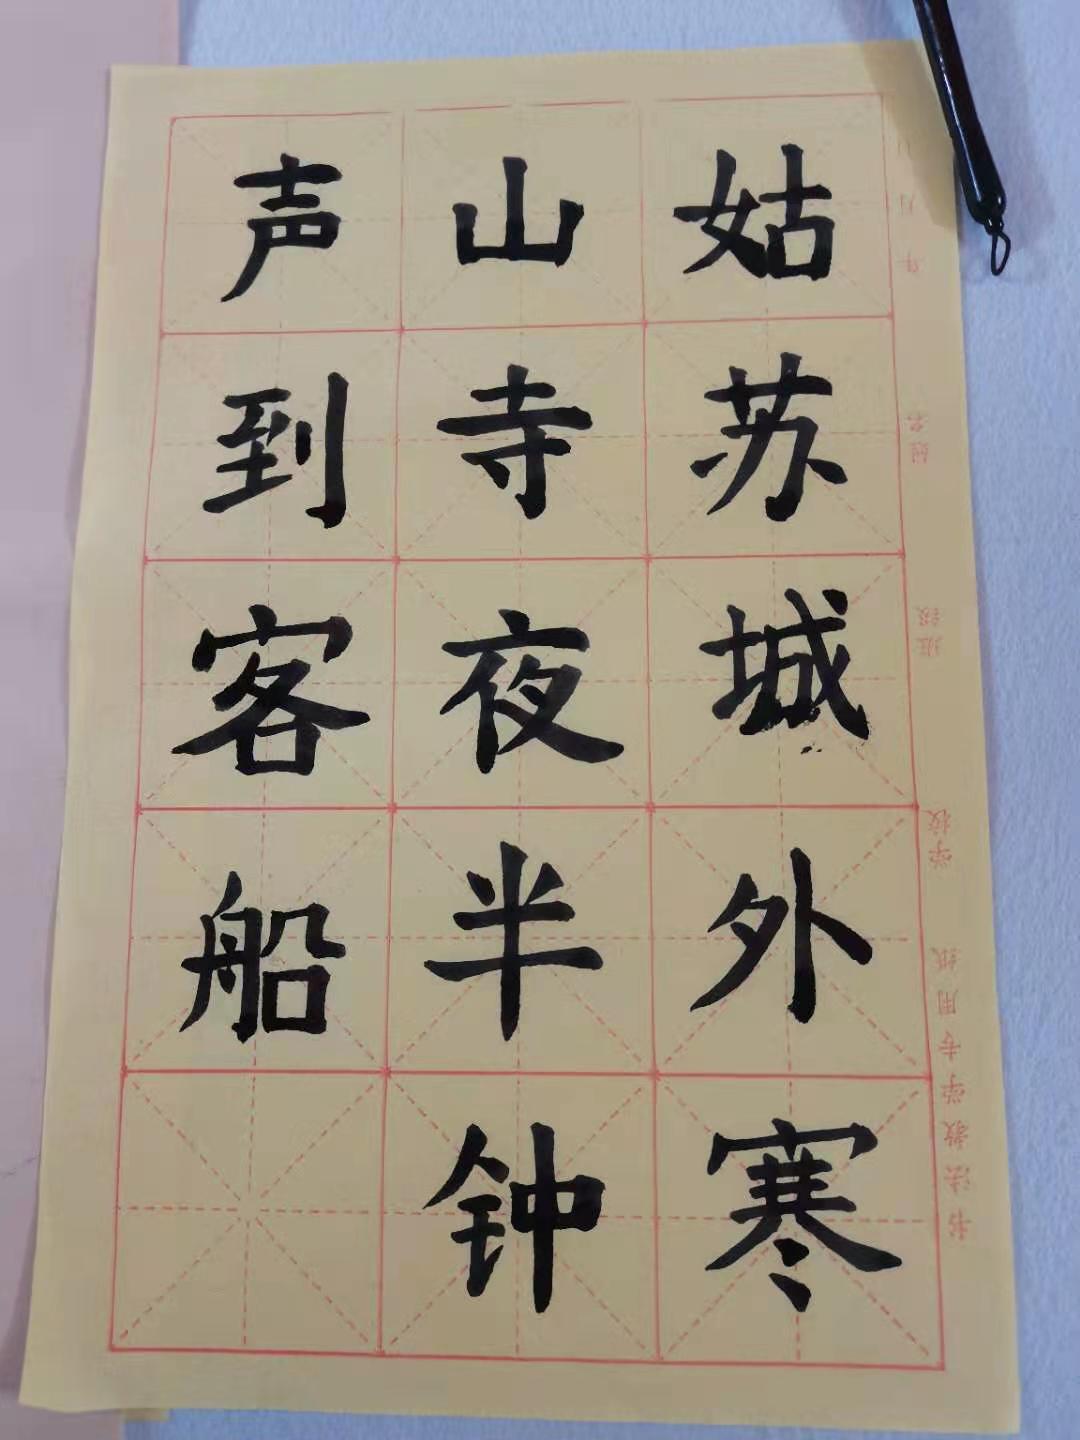 姑苏城外寒
山寺夜半钟
声到客船
书法教学专用纸 学校 班级 姓名 年 月 日